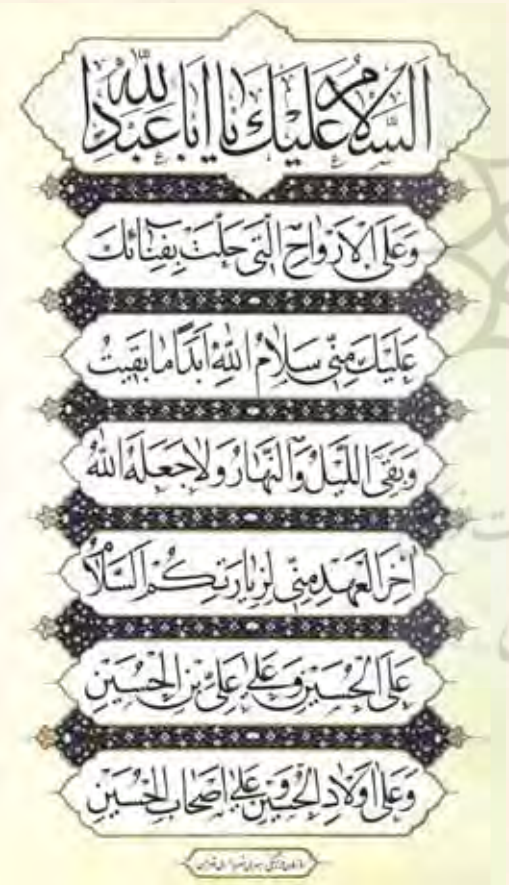 اَلسَّلامُ عَلَيْكَ يا اَبا عَبْدِ اللهِ
وَعَلَى الْاَرْواحِ الَّتي حَلَّتْ بِفِنائِكَ
عَلَيْكَ مِنّي سَلامُ اللهِ اَبَداً ما بَقيتُ
وَبَقِيَ اللَّيْلُ وَالنَّهارُ وَلا جَعَلَهُ اللهُ
اخِرَ الْعَهْدِ مِنّي لِزِيارَتِكُمْ اَلسَّلامُ
عَلَى الْحُسَيْنِ وَعَلى عَلِيِّ بْنِ الْحُسَيْنِ
وَعَلى اَوْلادِ الْحُسَيْنِ وَعَلى اَصْحابِ الْحُسَيْنِ